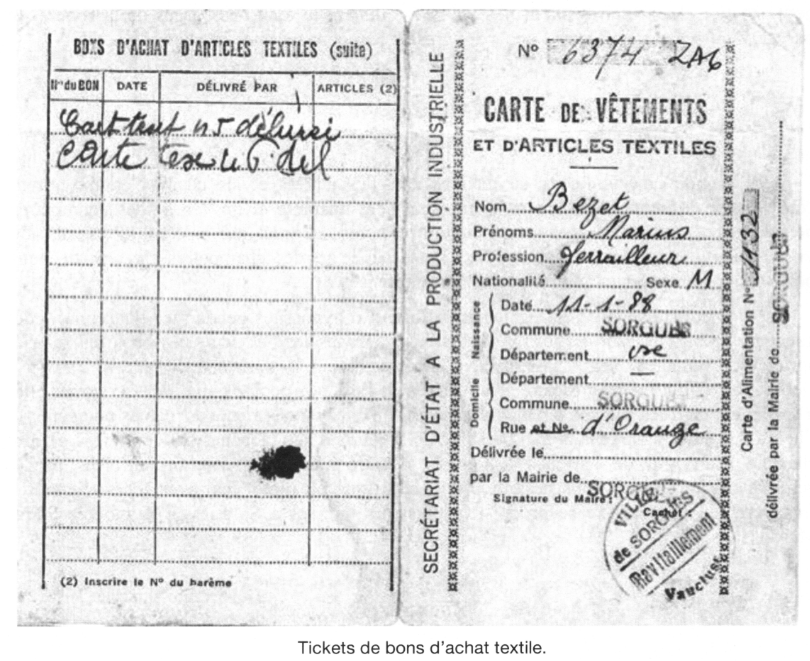 BONS D'ACHAT D'ARTICLES TEXTILES (suite)
N° du BON DATE DÉLIVRÉ PAR ARTICLES (2)
Cart n° 5
Carte
(2) Inscrire le N° du barème
SECRÉTARIAT D'ÉTAT A LA PRODUCTION INDUSTRIELLE
N° 6374 2A6
CARTE DE VÊTEMENTS
ET D'ARTICLES TEXTILES
Nom Bezet
Prénoms Marius
Profession Ferrailleur
Nationalité Sexe M
Naissance
Date 11-1-88
Commune SORGUES
Département vse
Domicile
Département —
Commune SORGUES
Rue et No. d'Orange
Délivrée le
par la Mairie de SORGUES
Signature du Maire: Cachet:
VILLE de SORGUES
Ravitaillement
Vaucluse
Carte d'Alimentation N° 1132
délivrée par la Mairie de SORGUES
Tickets de bons d'achat textile.